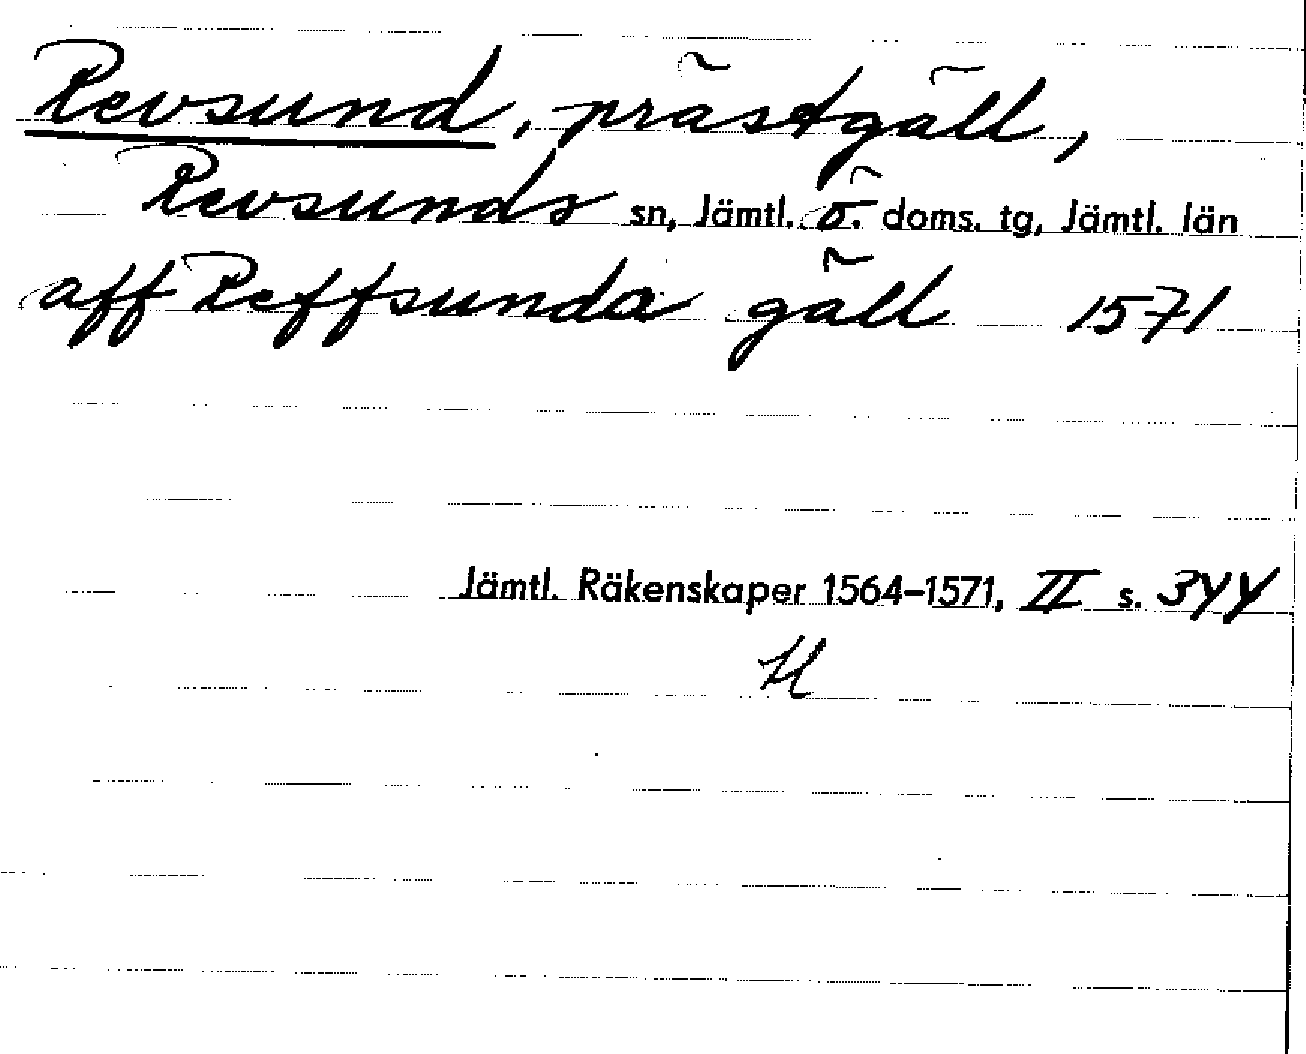 Revsund, prästgäll,
Revsunds sn, Jämtl. ö. doms. tg, Jämtl. län
aff Reffsunda gäll 1571
Jämtl. Räkenskaper 1564–1571, II s. 344